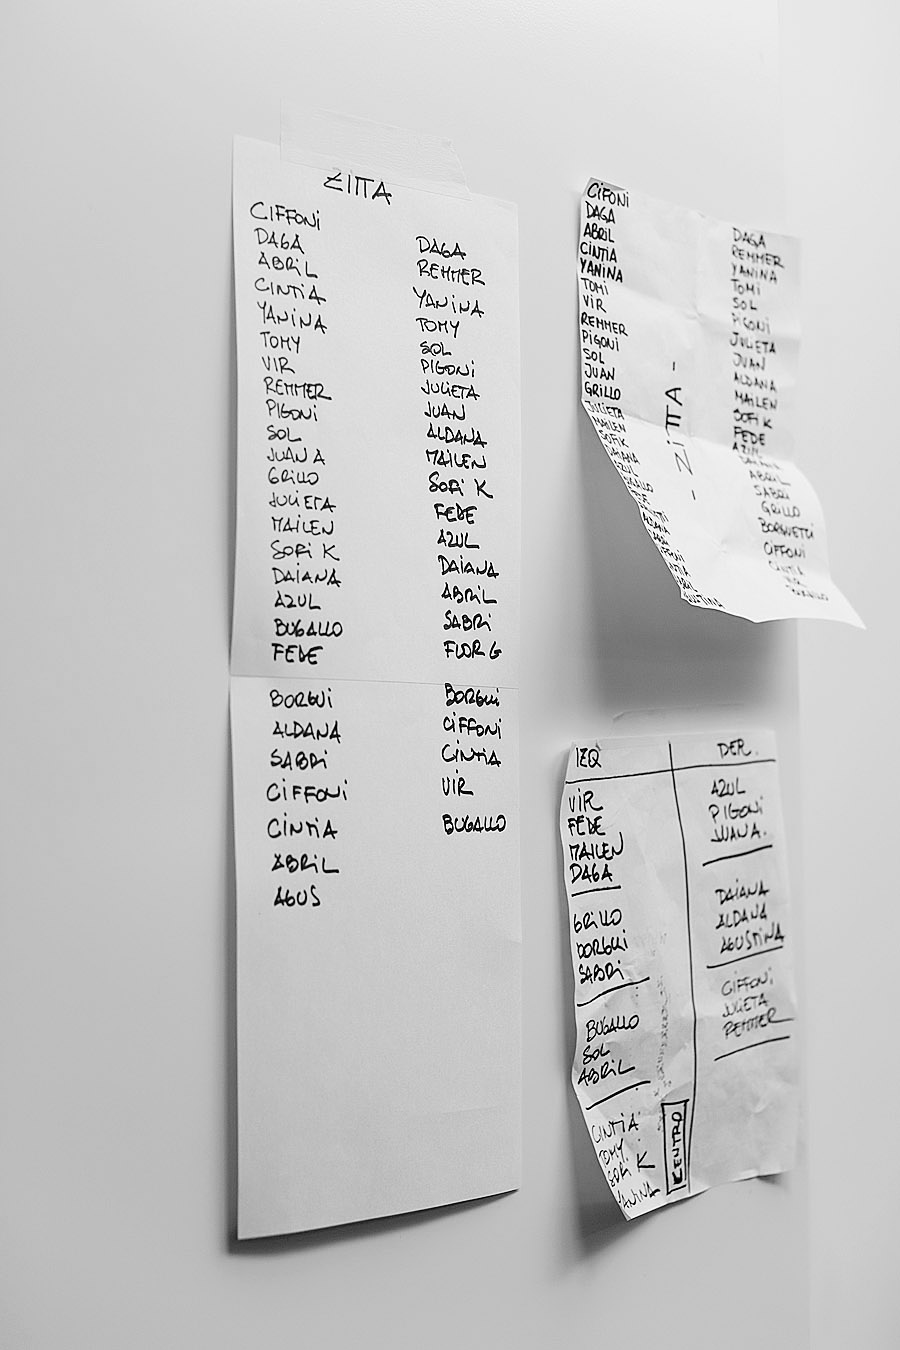 ZITTA
CIFFONI
DAGA
ABRIL
CINTIA
YANINA
TOMY
VIR
REMMER
PIGONI
SOL
JUAN A
GRILLO
JULIETA
MAILEN
SOFI K
DAIANA
AZUL
BUGALLO
FEDE
BORGUI
ALDANA
SABRI
CIFFONI
CINTIA
ABRIL
AGUS
DAGA
REMMER
YANINA
TOMY
SOL
PIGONI
JULIETA
JUAN
ALDANA
MAILEN
SOFI K
FEDE
AZUL
DAIANA
ABRIL
SABRI
FLOR G
BORGUI
CIFFONI
CINTIA
VIR
BUGALLO
CIFONI
DAGA
ABRIL
CINTIA
YANINA
TOMI
VIR
REMMER
PIGONI
SOL
JUAN
GRILLO
JULIETA
MAILEN
SOFI K
DAIANA
AZUL
- ZITTA -
DAGA
REMMER
YANINA
TOMI
SOL
PIGONI
JULIETA
JUAN
ALDANA
MAILEN
SOFI K
FEDE
AZUL
ABRIL
SABRI
GRILLO
BORGUETTI
CIFFONI
CINTIA
IZQ
VIR
FEDE
MAILEN
DAGA
GRILLO
BORGUI
SABRI
BUGALLO
SOL
ABRIL
CINTIA
TOMY
SOFI K
YANINA
CENTRO
DER.
AZUL
PIGONI
JUANA.
DAIANA
ALDANA
AGUSTINA
CIFFONI
JULIETA
REMMER